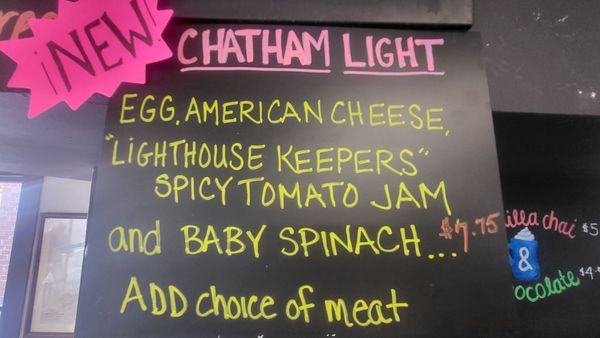 ¡NEW!
CHATHAM LIGHT
EGG, AMERICAN CHEESE,
"LIGHTHOUSE KEEPERS"
SPICY TOMATO JAM
and BABY SPINACH... $7.75
ADD choice of meat
chai $5
&
$4.